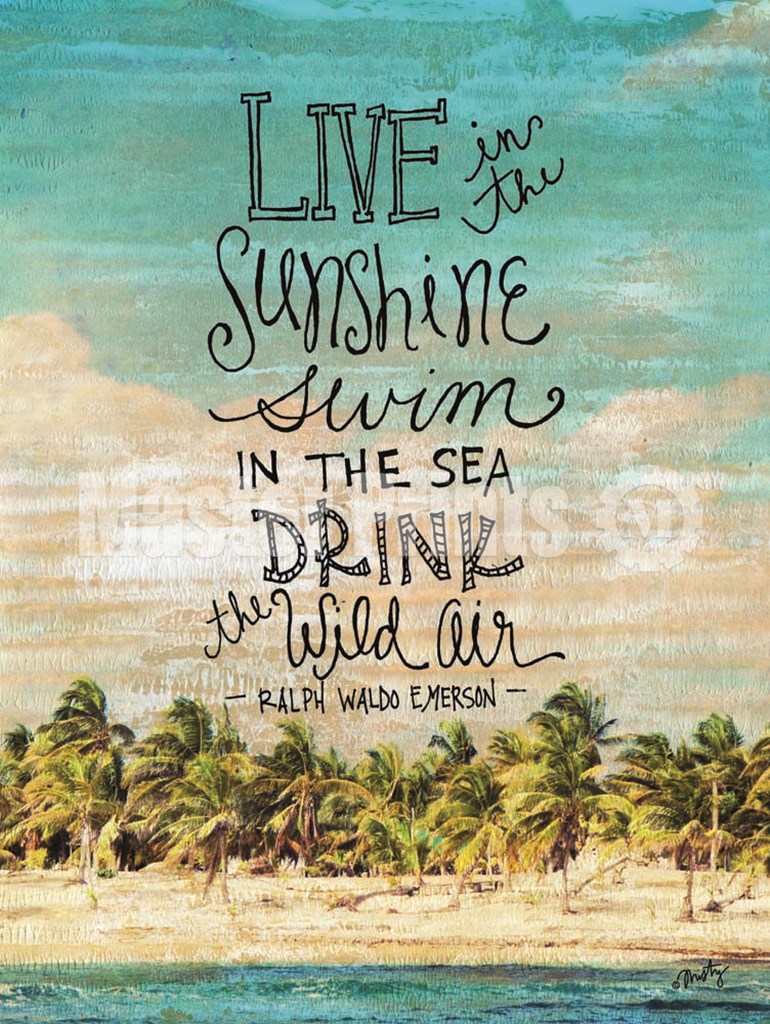 LIVE in the
Sunshine
swim
IN THE SEA
DRINK
the Wild air
- RALPH WALDO EMERSON -
© Misty